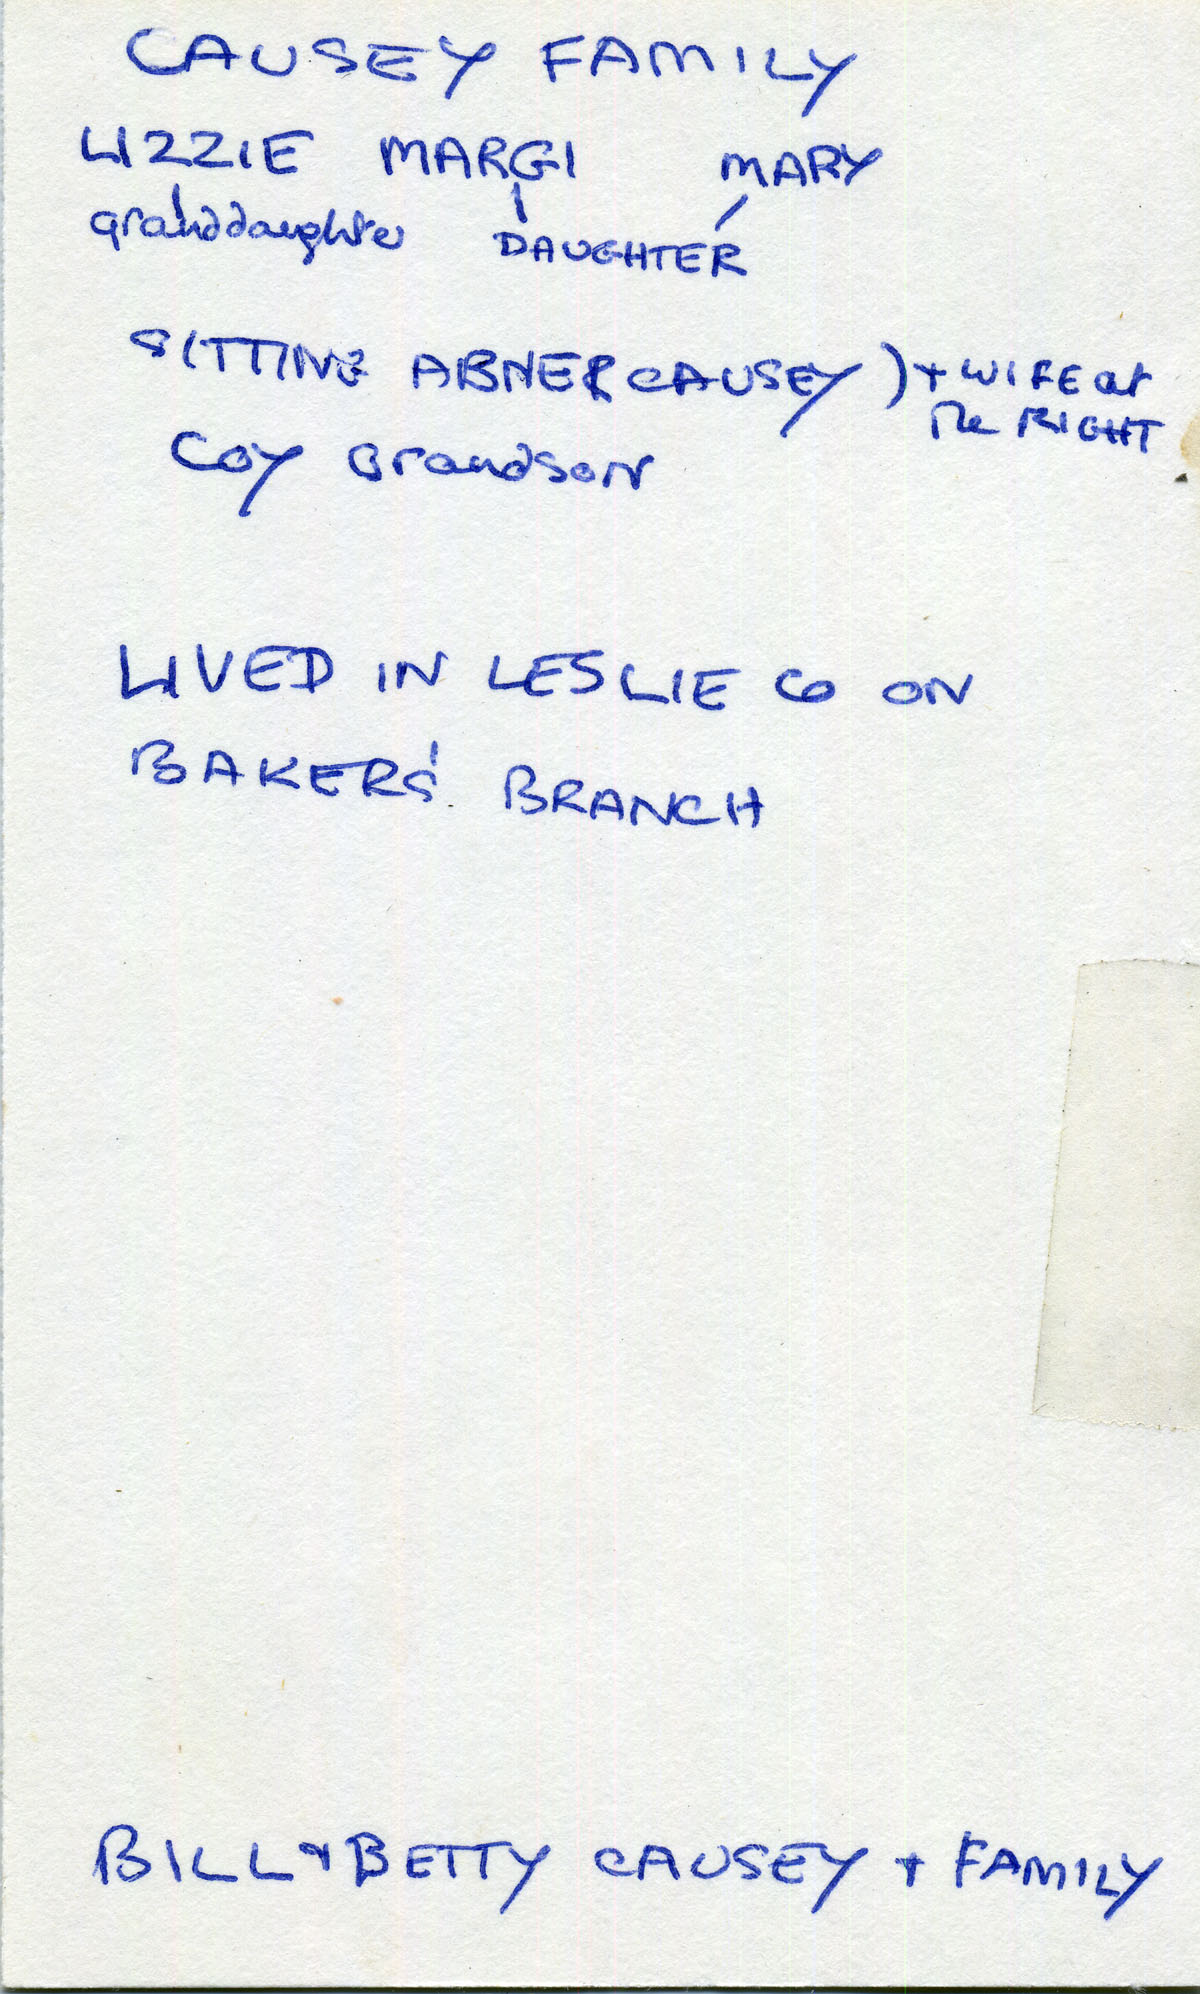 CAUSEY FAMILY
LIZZIE MARGI MARY
granddaughter DAUGHTER
SITTING ABNER CAUSEY ) + WIFE at
the RIGHT
COY Grandson
LIVED IN LESLIE CO ON
BAKERS' BRANCH
BILL + BETTY CAUSEY + FAMILY